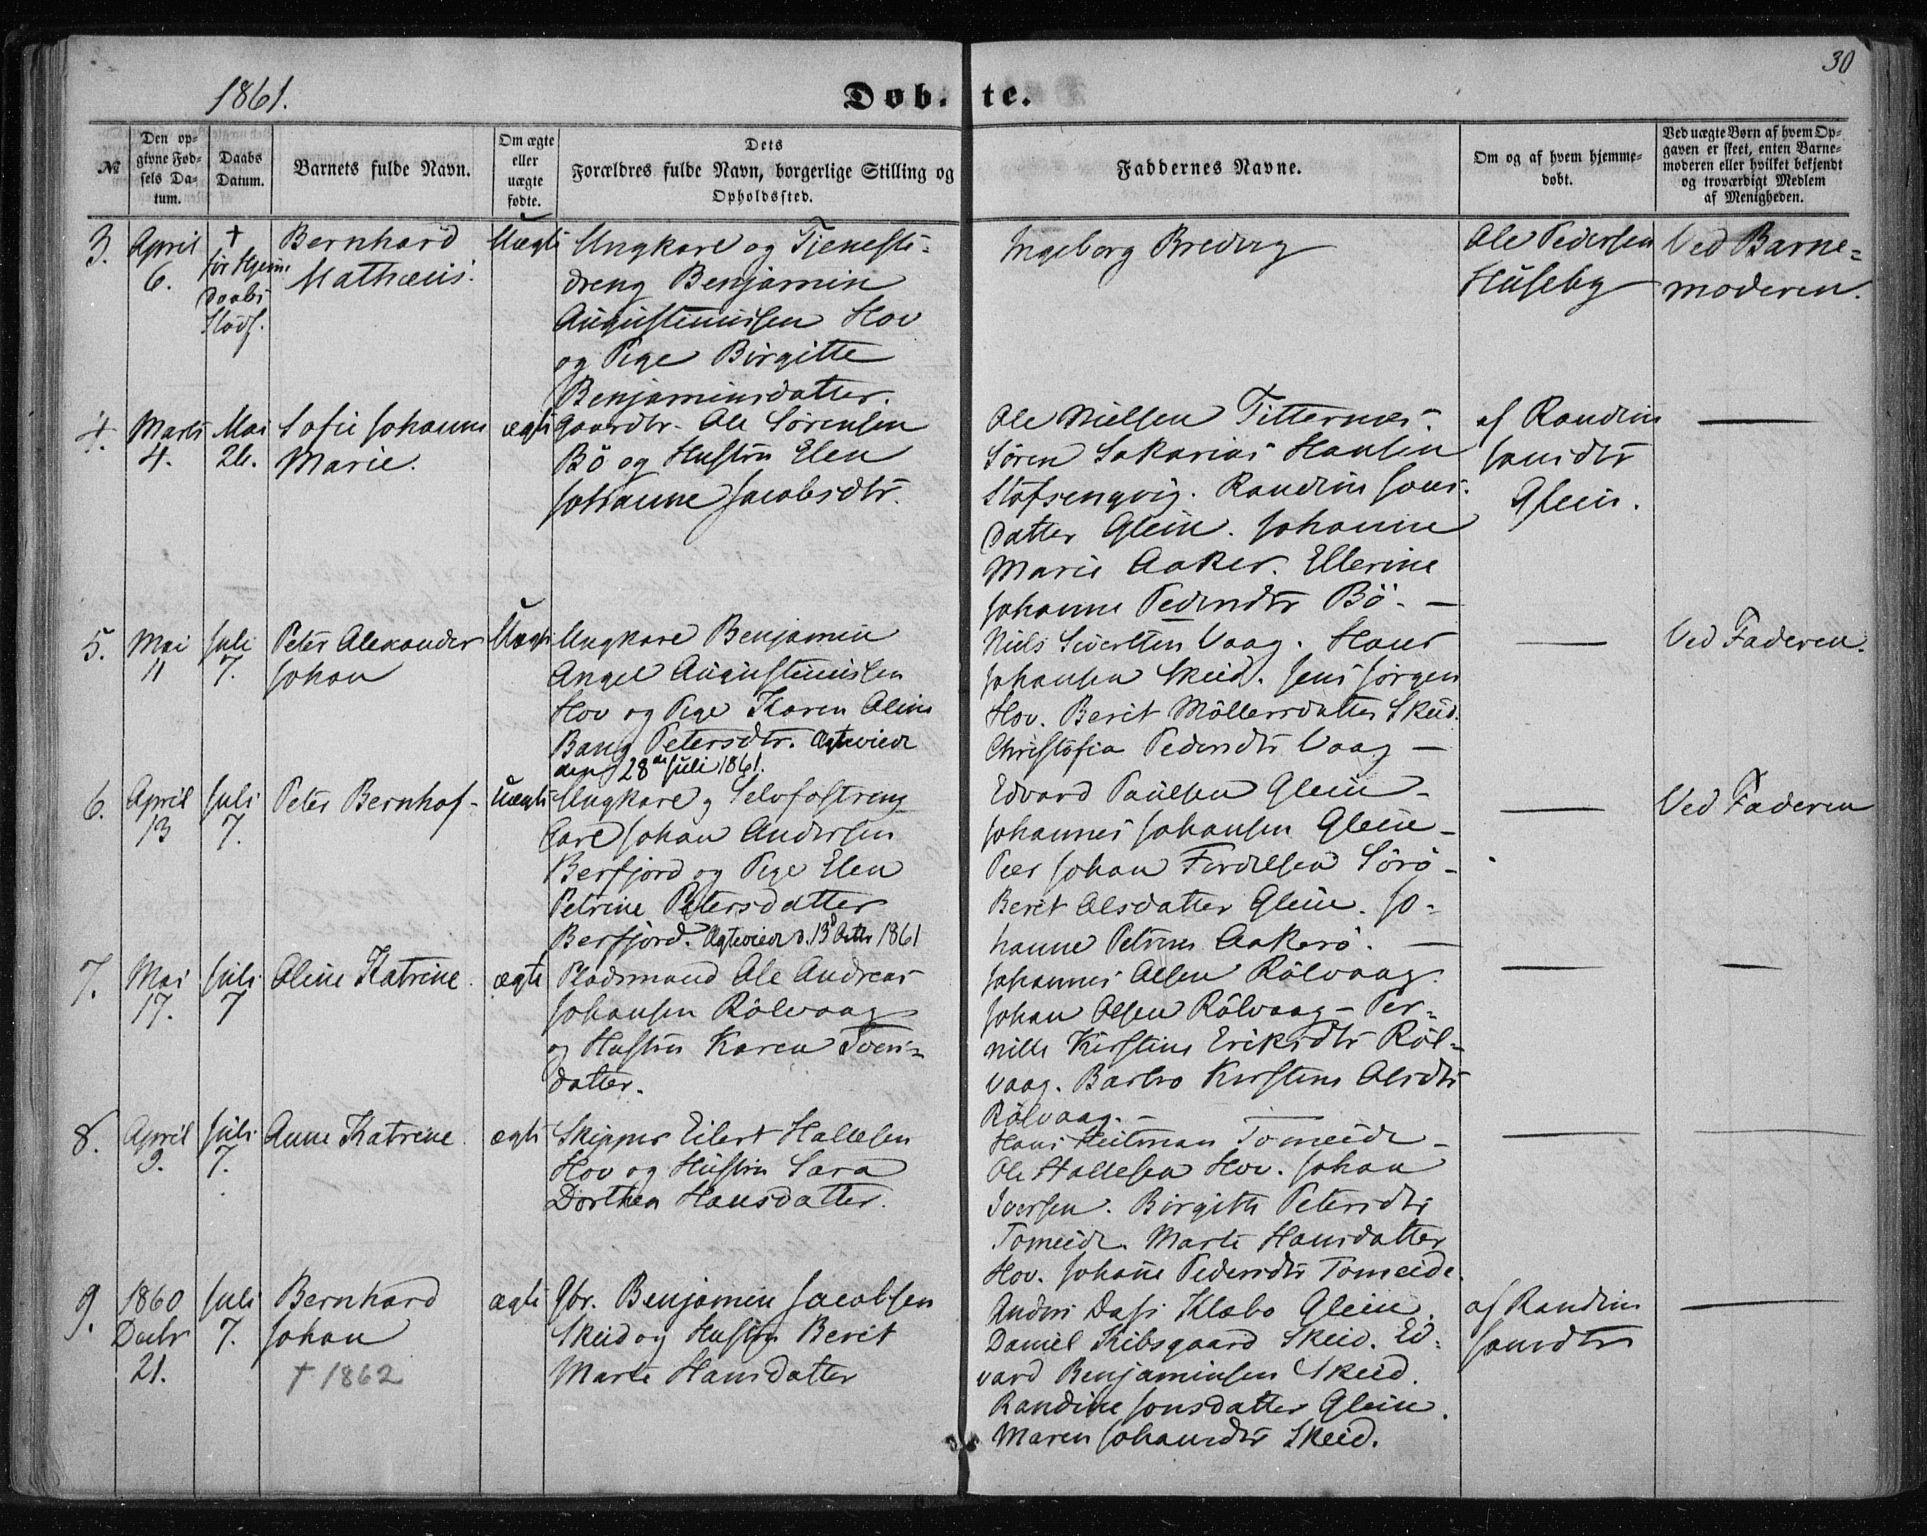 1861.
Døb- te.
30
№
Den op-
givne Fød-
sels Da-
tum.
Daabs
Datum.
Barnets fulde Navn.
Om ægte
eller
uægte
fødte.
Dets
Forældres fulde Navn, borgerlige Stilling og
Opholdssted.
Faddernes Navne.
Om og af hvem hjemme-
døbt.
Ved uægte Børn af hvem Op-
gaven er skeet, enten Barne-
moderen eller hvilket bekjendt
og troværdigt Medlem
af Menigheden.
3.
April
6.
†
før Hjem
daabs
Stadf.
Bernhard
Mathæus.
Uægte
Ungkarl og Tjeneste-
dreng Benjamin
Augustinussen Hov
og Pige Birgitte
Benjaminsdatter.
Ingeborg Breding
Ole Pedersen
Huseby
Ved Barne-
moderen.
4.
Marts
4.
Mai
26.
Sofie Johanna
Marie.
ægte
Gaardbr. Ole Sørensen
Bö og Hustru Elen
Johanne Jacobsdtr.
Ole Nielsen Titternes.
Sören Sakarias Hansen
Stofsengvig. Randine Jons-
datter Glein. Johanne
Marie Aaker. Ellerine
Johanne Pedersdtr Bö. —
af Randine
Jonsdtr
Glein.
—
5.
Mai
11
Juli
7.
Peter Alexander
Johan
Uægte
Ungkarl Benjamin
Angel Augustinussen
Hov og Pige Karen Oline
Bang Petersdtr. Ægteviede
den 28de Juli 1861.
Niels Sivertsen Vaag. Hans
Johansen Skeid. Jens Jörgen
Hov. Berit Möllersdatter Skeid.
Christofia Pedersdtr Vaag —
—
Ved Faderen.
6.
April
13
Juli
7.
Peter Bernhof-
Uægte
Ungkarl og Selvfostreng
Carl Johan Andersen
Berfjord og Pige Elen
Petrine Petersdatter
Berfjord. Ægteviede d. 13d Octbr 1861
Edvard Paulsen Glein -
Johannes Johansen Glein -
Peer Johan Fordelsen Sörö -
Berit Olsdatter Glein. Jo-
hanne Petrine Aakerö. —
—
Ved Faderen
7.
Mai
17.
Juli
7
Oline Katrine.
ægte
Pladsmand Ole Andreas
Johansen Rölvaag
og Hustru Karen Ivers-
datter.
Johannes Olsen Rölvaag.
Johan Olsen Rölvaag - Per-
nille Kirstine Eriksdtr Röl-
vaag. Barbro Kirstine Olsdtr
Rölvaag. —
—
—
8.
April
9.
Juli
7.
Anne Katrine.
ægte
Skipper Eilert Hallesen
Hov og Hustru Sara
Dorthea Hansdatter.
Hans Heitman Tomeide -
Ole Hallesen Hov. Johan
Iversen. Birgitte Petersdtr
Tomeide. Marte Hansdatter
Hov. Johane Pedersdtr Tomeide.
—
—
9.
1860
Decbr
21.
Juli
7.
Bernhard
Johan
† 1862
ægte
Gbr. Benjamin Jacobsen
Skeid og Hustru Berit
Marte Hansdatter
Anders Dass Klæbo Glein.
Daniel Skibsgaard Skeid. Ed-
vard Benjaminsen Skeid.
Randine Jonsdatter Glein.
Maren Johansdtr Skeid.
af Randine
Jonsdtr
—